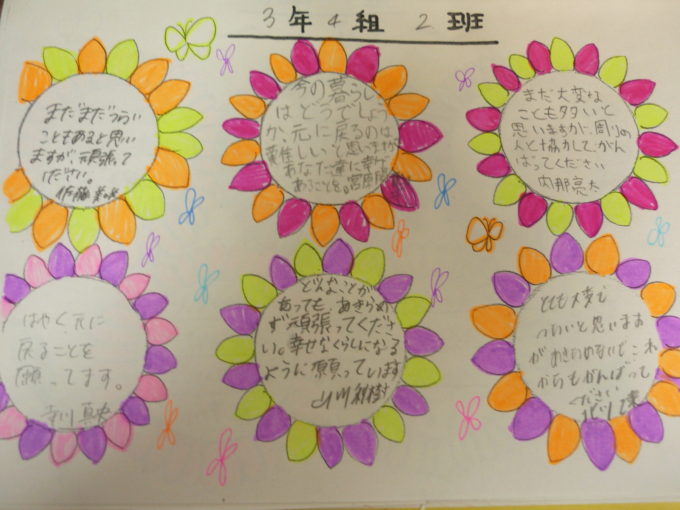 3年4組 2班
まだまだつらい
こともあると思い
ますが頑張って
ください。
佐藤
今の暮らし
はどうでしょう
か、元に戻るのは
難しいと思いますが
あなた達に幸が
あることを。宮原
まだ大変な
ことも多いと
思いますが、周りの
人と協力してがん
ばってください
内那亮太
はやく元に
戻ることを
願ってます。
寺川 真央
どんなことが
あってもあきらめ
ず頑張ってくださ
い。幸せなくらしになる
ように願っています
山川
とても大変で
つらいと思います
があきらめないでこれ
からもがんばって
ください